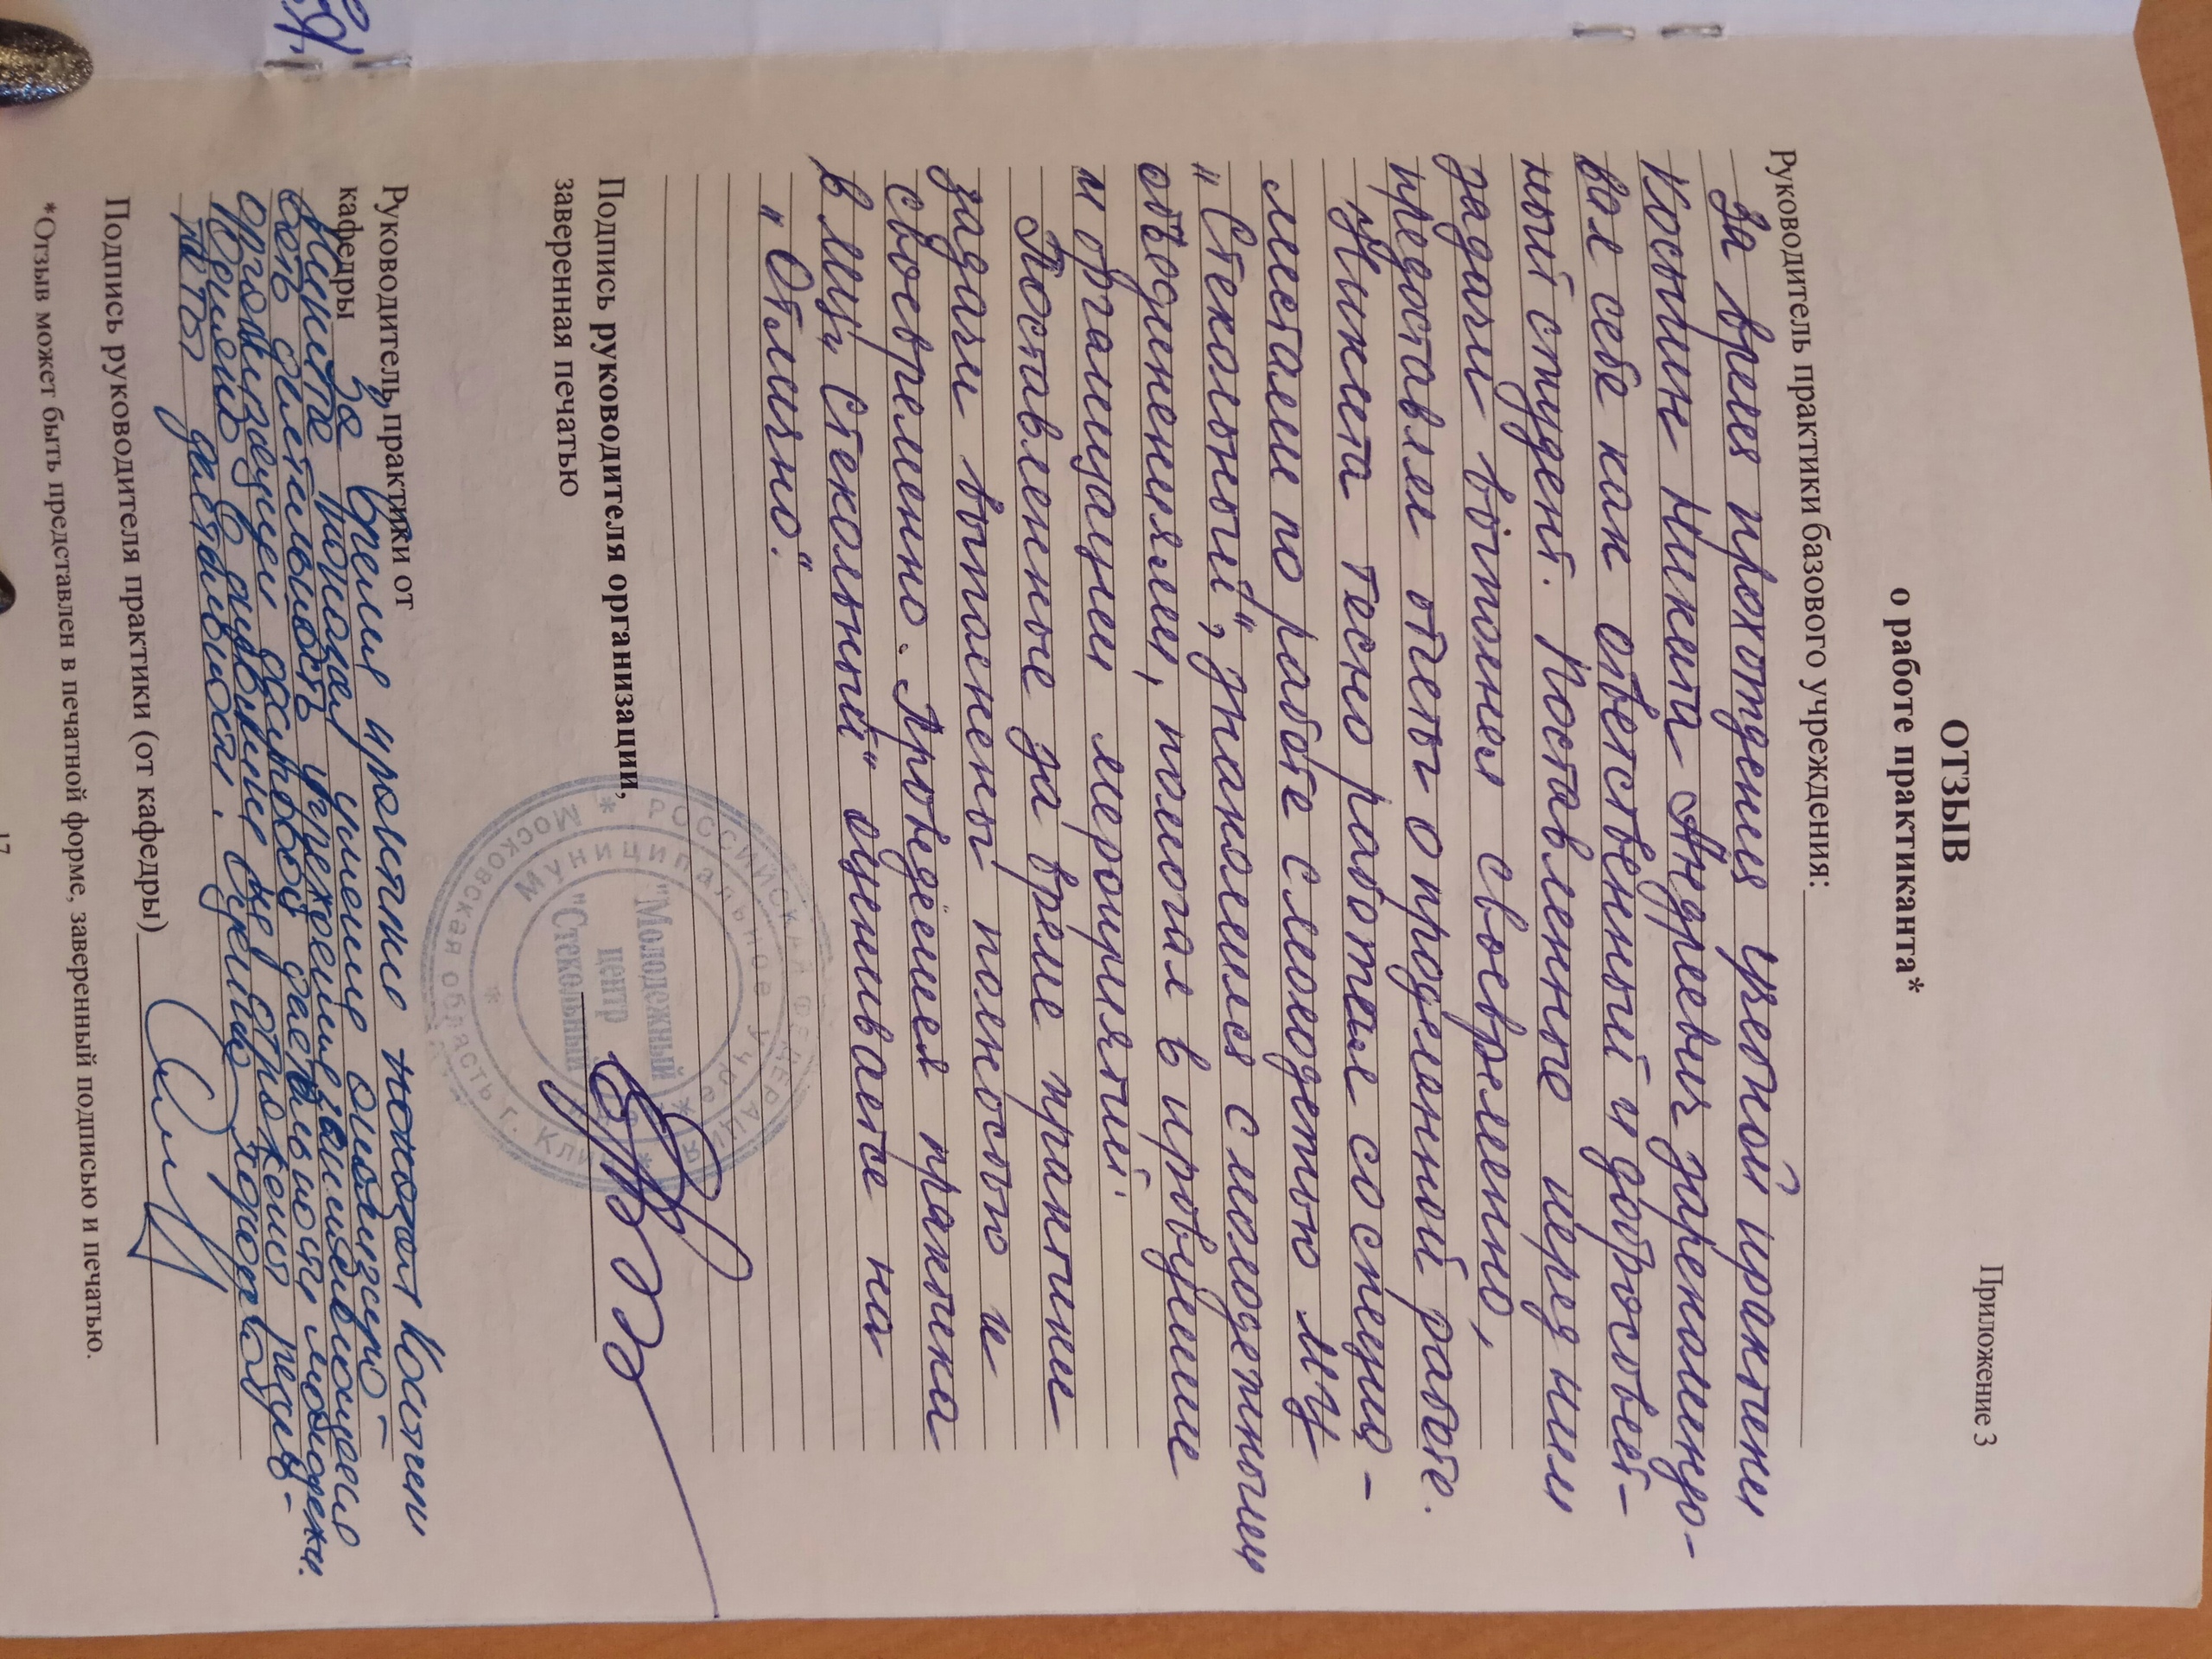 Приложение 3
ОТЗЫВ
о работе практиканта*
Руководитель практики базового учреждения:
За время прохождения учебной практики
Костин Никита Андреевич зарекомендо-
вал себя как ответственный и добросовест-
ный студент. Поставленные перед ним
задачи выполнял своевременно,
предоставлял отчеты о проделанной работе.
Никита тесно работал со специа-
листами по работе с молодежью МЦ
"Стекольный", знакомился с молодежными
объединениями, помогал в проведение
и организации мероприятий.
Поставленные за время практике
задачи выполнены полностью и
своевременно. Проведённая практика
в МЦ "Стекольный" оценивается на
"Отлично."
Подпись руководителя организации,
заверенная печатью
* РОССИЙСКАЯ ФЕДЕРАЦИЯ *
Московская область г. Клин
Муниципальное учре
"Молодежный
центр
"Стекольный
Руководитель практики от
кафедры За время практики показал Костин
Никита показал умение анализиро-
вать деятельность учреждения занимающееся
организацией досуговой деятельности молодежи.
Решению
таты достигивает.
Подпись руководителя практики (от кафедры)
*Отзыв может быть представлен в печатной форме, заверенный подписью и печатью.
17